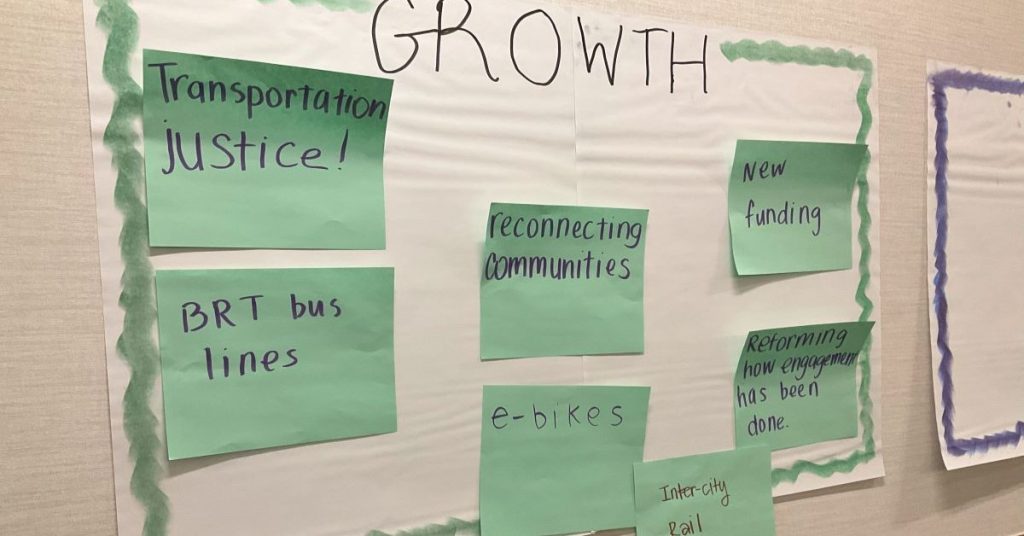 GROWTH
Transportation
justice!
BRT bus
lines
reconnecting
communities
e-bikes
New
funding
Reforming
how engagement
has been
done.
Inter-city
Rail